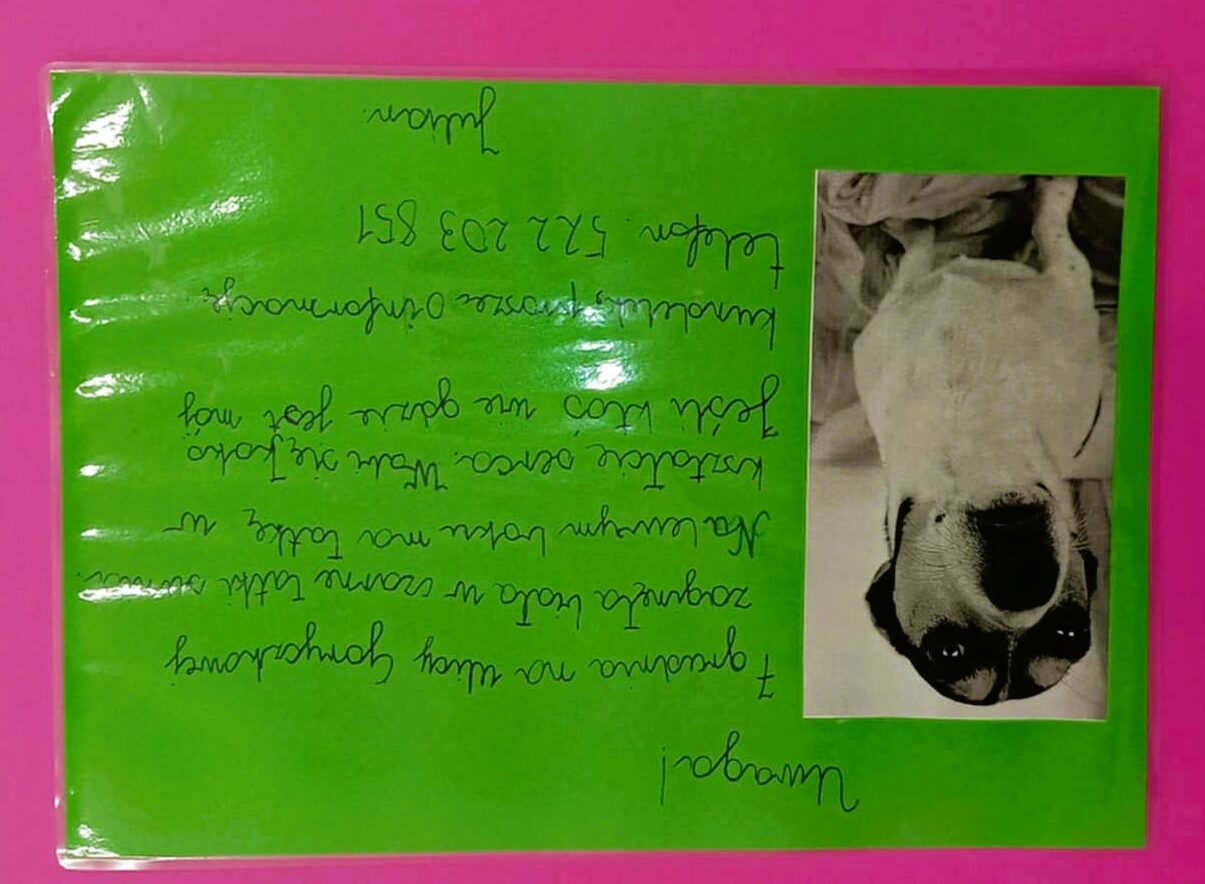 Uwaga!
7 grudnia na ulicy Goryczkowej
zaginęła biała w czarne łatki sunia.
Na lewym boku ma łatkę w
kształcie serca. Wabi się Koko
Jeśli ktoś wie gdzie jest mój
kundelek, proszę o informację.
telefon: 522 203 851
Julian.